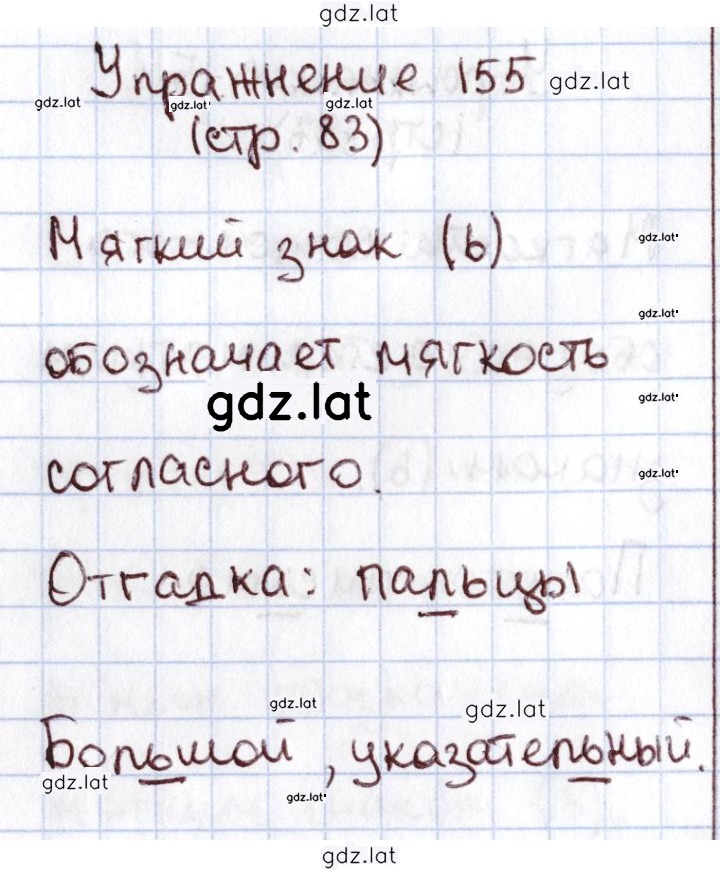 gdz.lat
Упражнение 155 gdz.lat
gdz.lat gdz.lat gdz.lat
(стр. 83)
Мягкий знак (ь) gdz.lat
gdz.lat
обозначает мягкость
gdz.lat gdz.lat
согласного. gdz.lat
Отгадка: пальцы
gdz.lat gdz.lat
Большой, указательный.
gdz.lat gdz.lat
gdz.lat